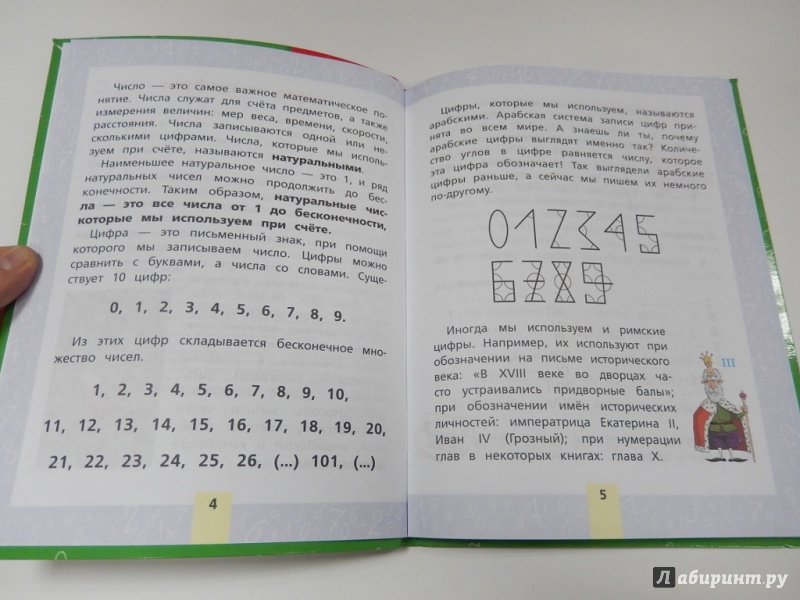 Число — это самое важное математическое по-
нятие. Числа служат для счёта предметов, а также
измерения величин: мер веса, времени, скорости,
расстояния. Числа записываются одной или не-
сколькими цифрами. Числа, которые мы исполь-
зуем при счёте, называются натуральными.
Наименьшее натуральное число — это 1, и ряд
натуральных чисел можно продолжить до бес-
конечности. Таким образом, натуральные чис-
ла — это все числа от 1 до бесконечности,
которые мы используем при счёте.
Цифра — это письменный знак, при помощи
которого мы записываем число. Цифры можно
сравнить с буквами, а числа со словами. Суще-
ствует 10 цифр:
0, 1, 2, 3, 4, 5, 6, 7, 8, 9.
Из этих цифр складывается бесконечное мно-
жество чисел.
1, 2, 3, 4, 5, 6, 7, 8, 9, 10,
11, 12, 13, 14, 15, 16, 17, 18, 19, 20,
21, 22, 23, 24, 25, 26, (...) 101, (...)
4
Цифры, которые мы используем, называются
арабскими. Арабская система записи цифр при-
нята во всем мире. А знаешь ли ты, почему
арабские цифры выглядят именно так? Количе-
ство углов в цифре равняется числу, которое
эта цифра обозначает! Так выглядели арабские
цифры раньше, а сейчас мы пишем их немного
по-другому.
0 1 2 3 4 5
6 7 8 9
Иногда мы используем и римские
цифры. Например, их используют при
обозначении на письме исторического
века: «В XVIII веке во дворцах ча-
сто устраивались придворные балы»;
при обозначении имён исторических
личностей: императрица Екатерина II,
Иван IV (Грозный); при нумерации
глав в некоторых книгах: глава X.
III
5
Лабиринт.ру